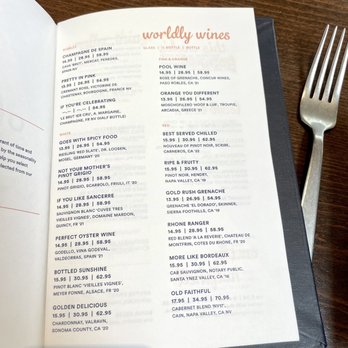 worldly wines
GLASS | ½ BOTTLE | BOTTLE
BUBBLES
CHAMPAGNE DE SPAIN
14.95 | 28.95 | 58.95
CAVA 'BRUT', MERCAT, PENEDES,
SPAIN NV
PRETTY IN PINK
13.95 | 26.95 | 54.95
CREMANT ROSE, VICTORINE DE
CHASTENAY, BOURGOGNE, FRANCE NV
IF YOU'RE CELEBRATING
CHAMPAGNE, FR NV (HALF BOTTLE)
WHITE
GOES WITH SPICY FOOD
13.95 | 26.95 | 54.95
RIESLING 'RED SLATE', DR. LOOSEN,
MOSEL, GERMANY '20
NOT YOUR MOTHER'S
PINOT GRIGIO
14.95 | 28.95 | 58.95
PINOT GRIGIO, SCARBOLO, FRIULI, IT '20
IF YOU LIKE SANCERRE
14.95 | 28.95 | 58.95
SAUVIGNON BLANC 'CUVEE TRES
VIEILLES VIGNES', DOMAINE MARDON,
QUINCY, FR '21
PERFECT OYSTER WINE
14.95 | 28.95 | 58.95
GODELLO, VINA GODEVAL,
VALDEORRAS, SPAIN '21
BOTTLED SUNSHINE
15.95 | 30.95 | 62.95
PINOT BLANC 'VIEILLES VIGNES',
MEYER FONNE, ALSACE, FR '20
GOLDEN DELICIOUS
15.95 | 30.95 | 62.95
CHARDONNAY, VALRAVN,
SONOMA COUNTY, CA '20
PINK & ORANGE
POOL WINE
14.95 | 28.95 | 58.95
ROSE OF GRENACHE, CORCUR WINES,
PASO ROBLES, CA '21
ORANGE YOU DIFFERENT
13.95 | 26.95 | 54.95
GREECE '21
RED
BEST SERVED CHILLED
15.95 | 30.95 | 62.95
NOUVEAU OF PINOT NOIR, SCRIBE,
CARNEROS, CA '22
RIPE & FRUITY
15.95 | 30.95 | 62.95
PINOT NOIR, KENEFY,
NAPA VALLEY, CA
GOLD RUSH GRENACHE
13.95 | 26.95 | 54.95
GRENACHE 'EL DORADO', SKINNER,
SIERRA FOOTHILLS, CA
RHONE RANGER
14.95 | 28.95 | 58.95
RED BLEND 'A LA REVERIE', CHATEAU DE
MONTFRIN, COTES DU RHONE, FR '20
MORE LIKE BORDEAUX
15.95 | 30.95 | 62.95
CAB SAUVIGNON, NOTARY PUBLIC,
SANTA YNEZ VALLEY, CA '16
OLD FAITHFUL
17.95 | 34.95 | 70.95
CABERNET BLEND 'NV17',
CAIN, NAPA VALLEY, CA NV